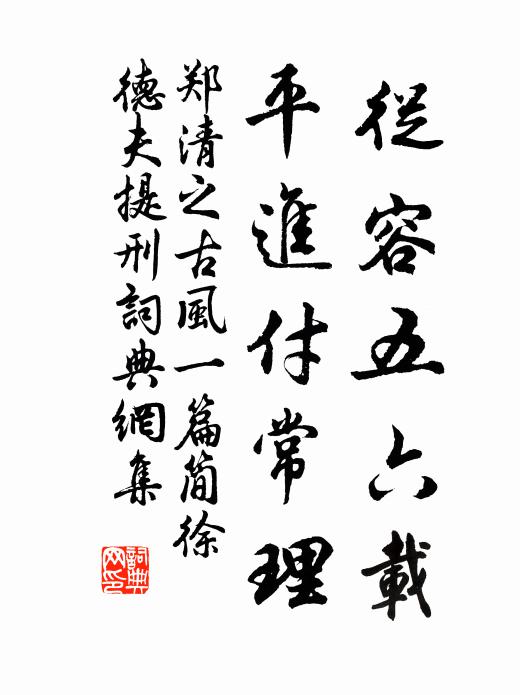 從容五六載
平進付常理
郑清之古風一篇简徐
德夫提刑詞典網集
詞典网印